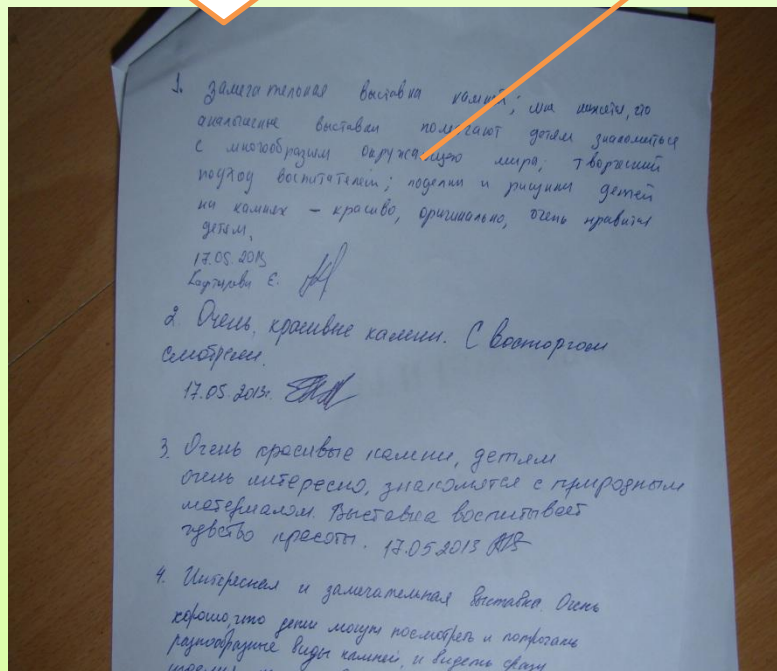 1. Замечательная выставка камней; мне кажется, что
аналогичные выставки помогают детям знакомиться
с многообразием окружающего мира; творческий
подход воспитателей; поделки и рисунки детей
на камнях – красиво, оригинально, очень нравится
детям.
17.05.2013
Е.
2. Очень красивые камни. С восторгом
смотрели.
17.05.2013г.
3. Очень красивые камни, детям
очень интересно, знакомятся с природным
материалом. Выставка воспитывает
чувство красоты. 17.05 2013
4. Интересная и замечательная выставка. Очень
хорошо, что дети могут посмотреть и потрогать
разнообразные виды камней, и видеть сразу